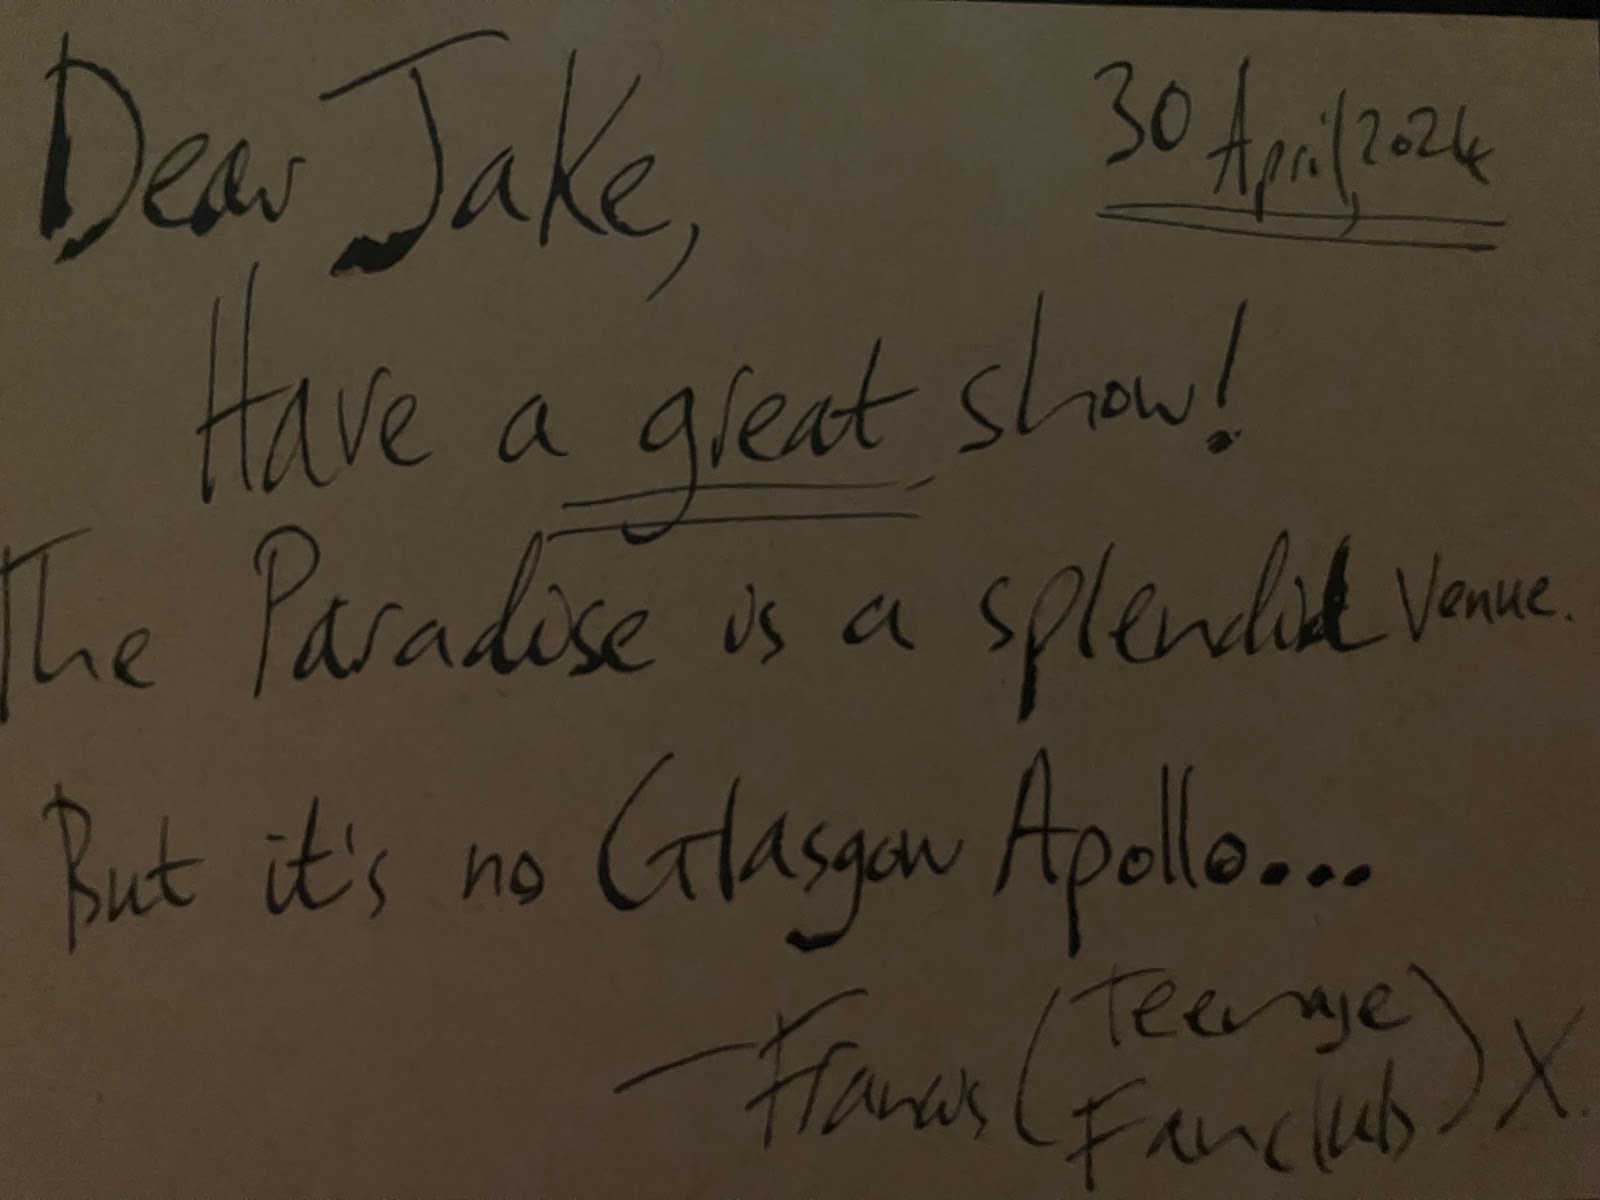 Dear Jake,
30 April, 2024
Have a great show!
The Paradise is a splendid venue.
But it's no Glasgow Apollo...
— Francis (Teenage
Fanclub) X.